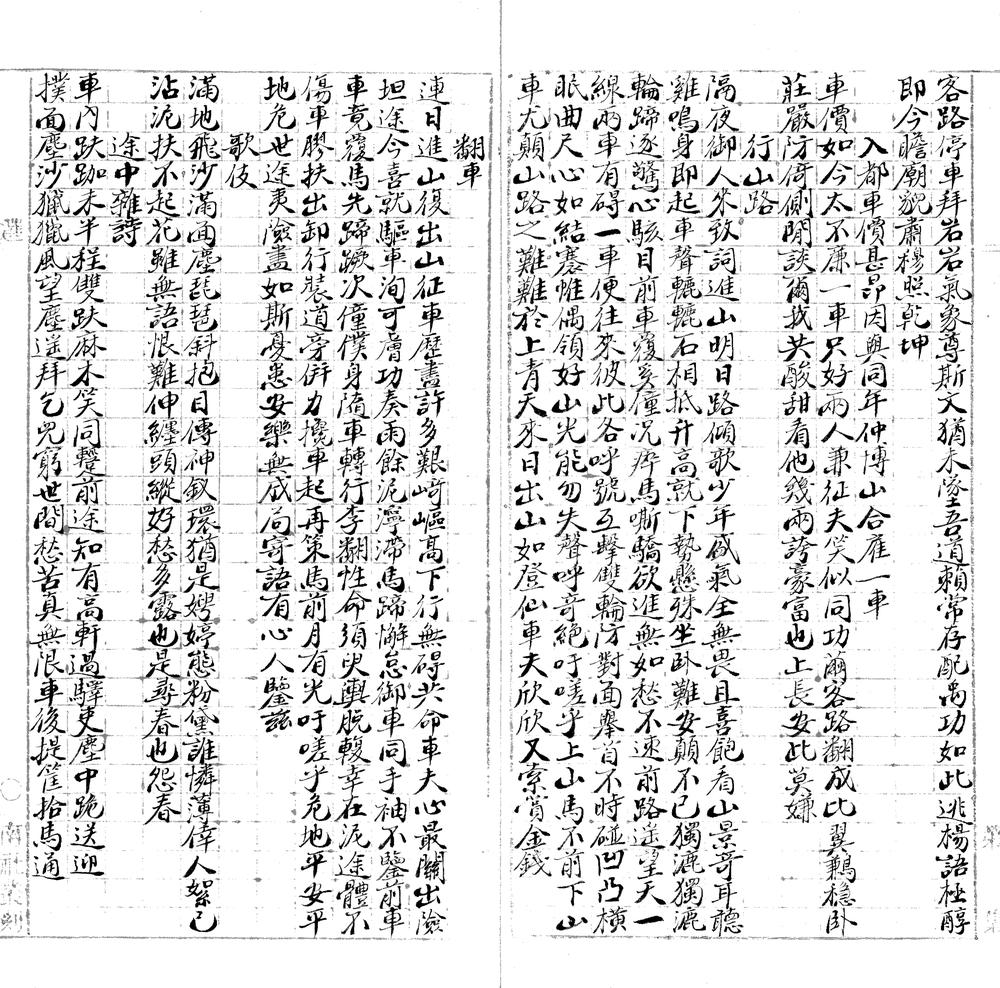 客路停車拜岩岩氣象尊斯文猶未墜吾道賴常存配禹功如此逃楊語極醇
即今瞻廟貌肅穆照乾坤
入都車價甚昂因與同年仲博山合雇一車
車價如今太不廉一車只好兩人兼征夫笑似同功繭客路翻成比翼鶼穩臥
莊嚴防倚側閒談爾我共酸甜看他幾兩誇豪富也上長安此莫嫌
行山路
隔夜御人來致詞進山明日路傾欹少年盛氣全無畏且喜飽看山景奇耳聽
雞鳴身即起車聲轆轆石相抵升高就下勢懸殊坐臥難安顛不已獨漉獨漉
輪蹄逐驚心駭目前車覆奚僮況瘁馬嘶驕欲進無如愁不速前路遙望天一
線兩車有碍一車便往來彼此各呼號互擊雙輪防對面舉首不時碰凹凸橫
眠曲尺心如結塞惟偶領好山光能勿失聲呼奇絕吁嗟乎上山馬不前下山
車尤顛山路之難難於上青天來日出山如登仙車夫欣欣又索賞金錢
翻車
連日進山復出山征車歷盡許多艱崎嶇高下行無碍共命車夫心最關出險
坦途今喜就驅車洵可膚功奏雨餘泥濘滯馬蹄懈怠御車同手袖不鑒前車
車竟覆馬先蹄蹶次僮僕身隨車轉行李翻性命須臾輿脫輹幸在泥途體不
傷車膠扶出卸行裝道旁併力攙車起再策馬前月有光吁嗟乎危地平安平
地危世途夷險盡如斯憂患安樂無成局寄語有心人鑒茲
歌伎
滿地飛沙滿面塵琵琶斜抱目傳神釵環猶是娉婷態粉黛誰憐薄倖人絮已
沾泥扶不起花雖無語恨難伸纏頭縱好愁多露也是尋春也怨春
途中雜詩
車內趺跏未半程雙趺麻木笑同躄前途知有高軒過驛吏塵中跪送迎
撲面塵沙獵獵風望塵遙拜乞兒窮世間愁苦真無限車後提筐拾馬通